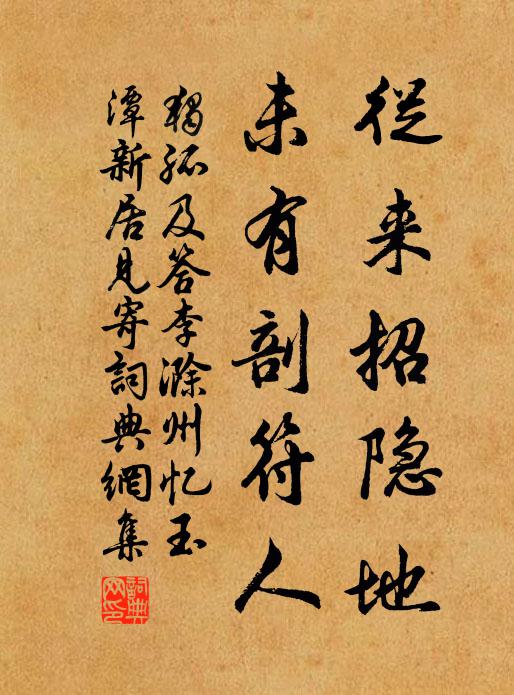 從来招隐地
未有剖符人
独孤及答李滁州忆玉
潭新居見寄詞典網集
詞典網印